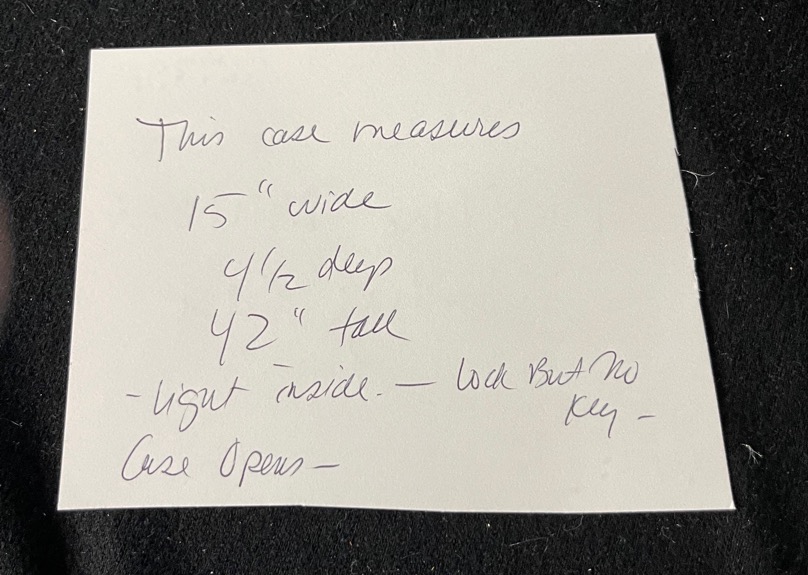 This case measures
15" wide
4 1/2 deep
42" tall
- Light inside. — Lock But No
Key -
Case Opens -